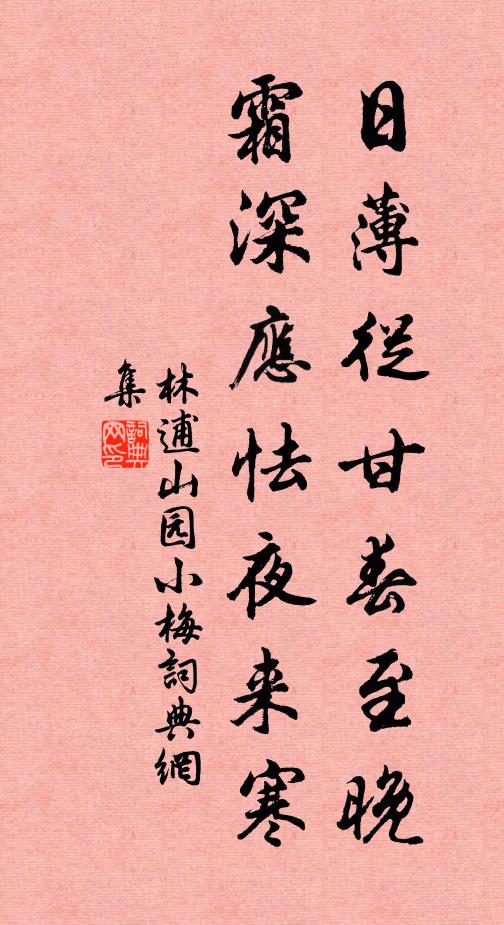 日薄從甘春至晚
霜深應怯夜来寒
林逋山园小梅詞典網
集
詞典网印